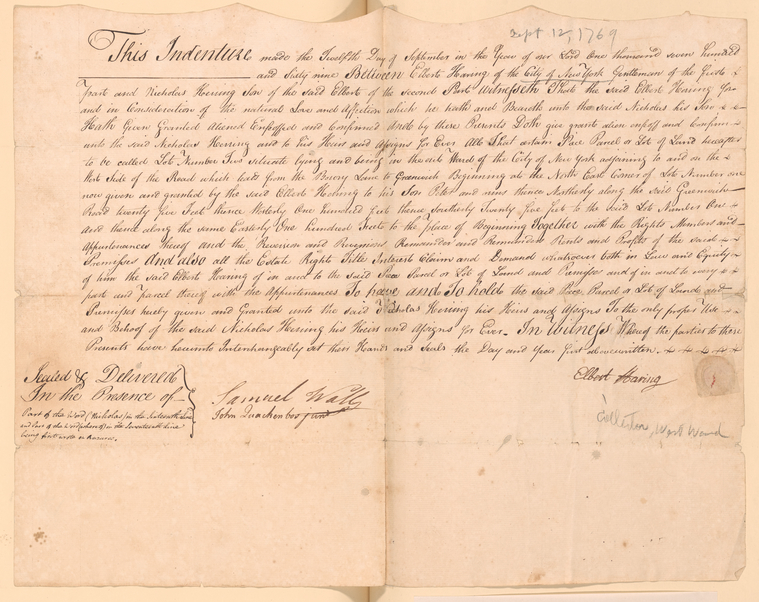 Sept 12, 1769
This Indenture made the Twelfth Day of September in the Year of our Lord One thousand seven hundred
and Sixty nine Between Elbert Haring of the City of New York Gentleman of the first
part and Nicholas Herring Son of the said Elbert of the second Part Witnesseth That the said Elbert Haring for
and in Consideration of the natural Love and Affection which he hath and Beareth unto the said Nicholas his Son
Hath Given Granted Aliened Enfeoffed and Confirmed And by these Presents Doth give grant alien enfeoff and Confirm
unto the said Nicholas Herring and to his Heirs and Assigns for Ever All that certain Piece Parcel or Lot of Land hereafter
to be called Lot Number Two situate lying and being in the out Ward of the City of New York adjoining to and on the
West Side of the Road which leads from the Bowry Lane to Greenwich Beginning at the North East Corner of Lot Number one
now given and granted by the said Elbert Haring to his Son Peter and runs thence Northerly along the said Greenwich
Road twenty five Feet thence Westerly One hundred feet thence Southerly Twenty five feet to the said Lot Number One
And thence along the same Easterly One hundred Feet to the place of Beginning Together with the Rights Members and
Appurtenances thereof and the Reversion and Reversions Remainder and Remainders Rents and Profits of the said
Premises And also all the Estate Right Title Interest Claim and Demand whatsoever both in Law and Equity
of him the said Elbert Haring of in and to the said Piece Parcel or Lot of Land and Premises and of in and to every
part and parcel thereof with the Appurtenances To have and To hold the said Piece Parcel or Lot of Land and
Premisses hereby given and Granted unto the said Nicholas Herring his Heirs and Assigns To the only proper Use
and Behoof of the said Nicholas Herring his Heirs and Assigns for Ever - In Witness Whereof the parties to these
Presents have hereunto Interchangeably set their Hands and Seals the Day and Year first abovewritten.
Elbert Haring
Sealed & Delivered
In the Presence of
Part of the Word (Nicholas) in the sixteenth Line
and Part of the Word (whereof) in the Seventeenth Line
being first wrote on Rasure.
Samuel Watts
John Quackenbos Junr
West Ward